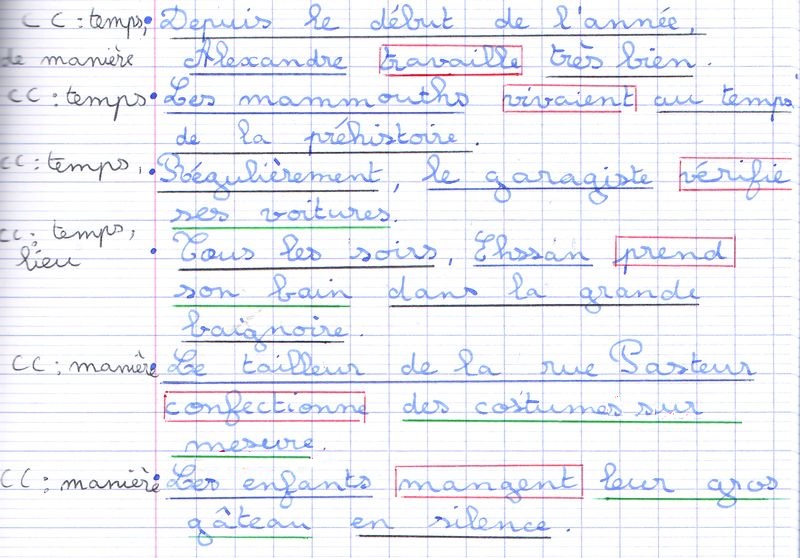 CC : temps, • Depuis le début de l'année,
de manière Alexandre travaille très bien.
CC : temps • Les mammouths vivaient au temps
de la préhistoire.
CC : temps, • Régulièrement, le garagiste vérifie
ses voitures.
CC : temps,
lieu • Tous les soirs, Ehssan prend
son bain dans la grande
baignoire.
CC : manière • Le tailleur de la rue Pasteur
confectionne des costumes sur
mesure.
CC : manière • Les enfants mangent leur gros
gâteau en silence.